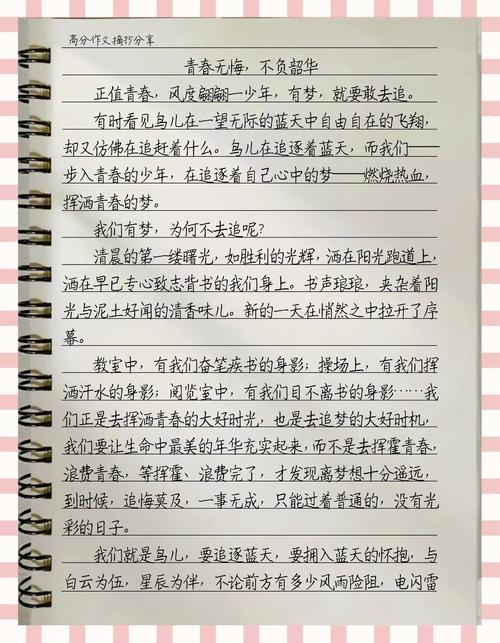 高分作文摘抄分享
青春无悔，不负韶华
正值青春，风度翩翩一少年，有梦，就要敢去追。
有时看见鸟儿在一望无际的蓝天中自由自在的飞翔，
却又仿佛在追赶着什么。鸟儿在追逐着蓝天，而我们——
步入青春的少年，在追逐着自己心中的梦——燃烧热血，
挥洒青春的梦。
我们有梦，为何不去追呢？
清晨的第一缕曙光，如胜利的光辉，洒在阳光跑道上，
洒在早已专心致志背书的我们身上。书声琅琅，夹杂着阳
光与泥土好闻的清香味儿。新的一天在悄然之中拉开了序
幕。
教室中，有我们奋笔疾书的身影；操场上，有我们挥
洒汗水的身影；阅览室中，有我们目不离书的身影……我
们正是去挥洒青春的大好时光，也是去追梦的大好时机，
我们要让生命中最美的年华充实起来，而不是去挥霍青春，
浪费青春，等挥霍、浪费完了，才发现离梦想十分遥远，
到时候，追悔莫及，一事无成，只能过着普通的，没有光
彩的日子。
我们就是鸟儿，要追逐蓝天，要拥入蓝天的怀抱，与
白云为伍，星辰为伴，不论前方有多少风雨险阻，电闪雷